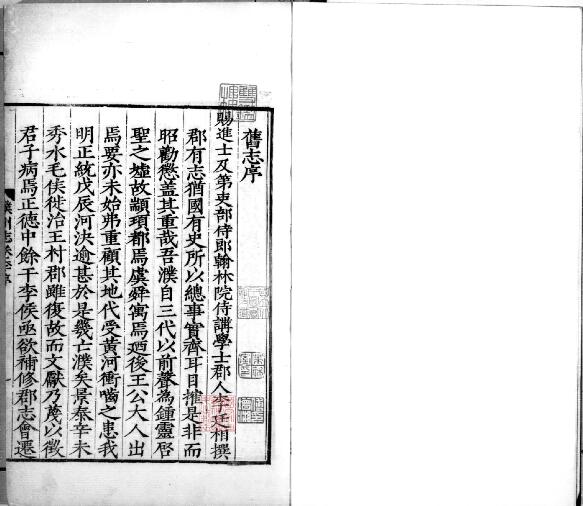 舊志序
賜進士及第吏部侍郎翰林院侍講學士郡人李廷相撰
郡有志猶國有史所以總事實齊耳目搉是非而
昭勸懲蓋其重哉吾濮自三代以前聲為鍾靈啓
聖之墟故顓頊都焉虞舜寓焉廼後王公大人出
焉要亦未始弗重顧其地代受黃河衝嚙之患我
明正統戊辰河決逾甚於是幾亡濮矣景泰辛未
秀水毛侯徙治王村郡雖復故而文厭乃蔑以徵
君子病焉正德中餘干李侯亟欲補修郡志會遷
濮州志
序